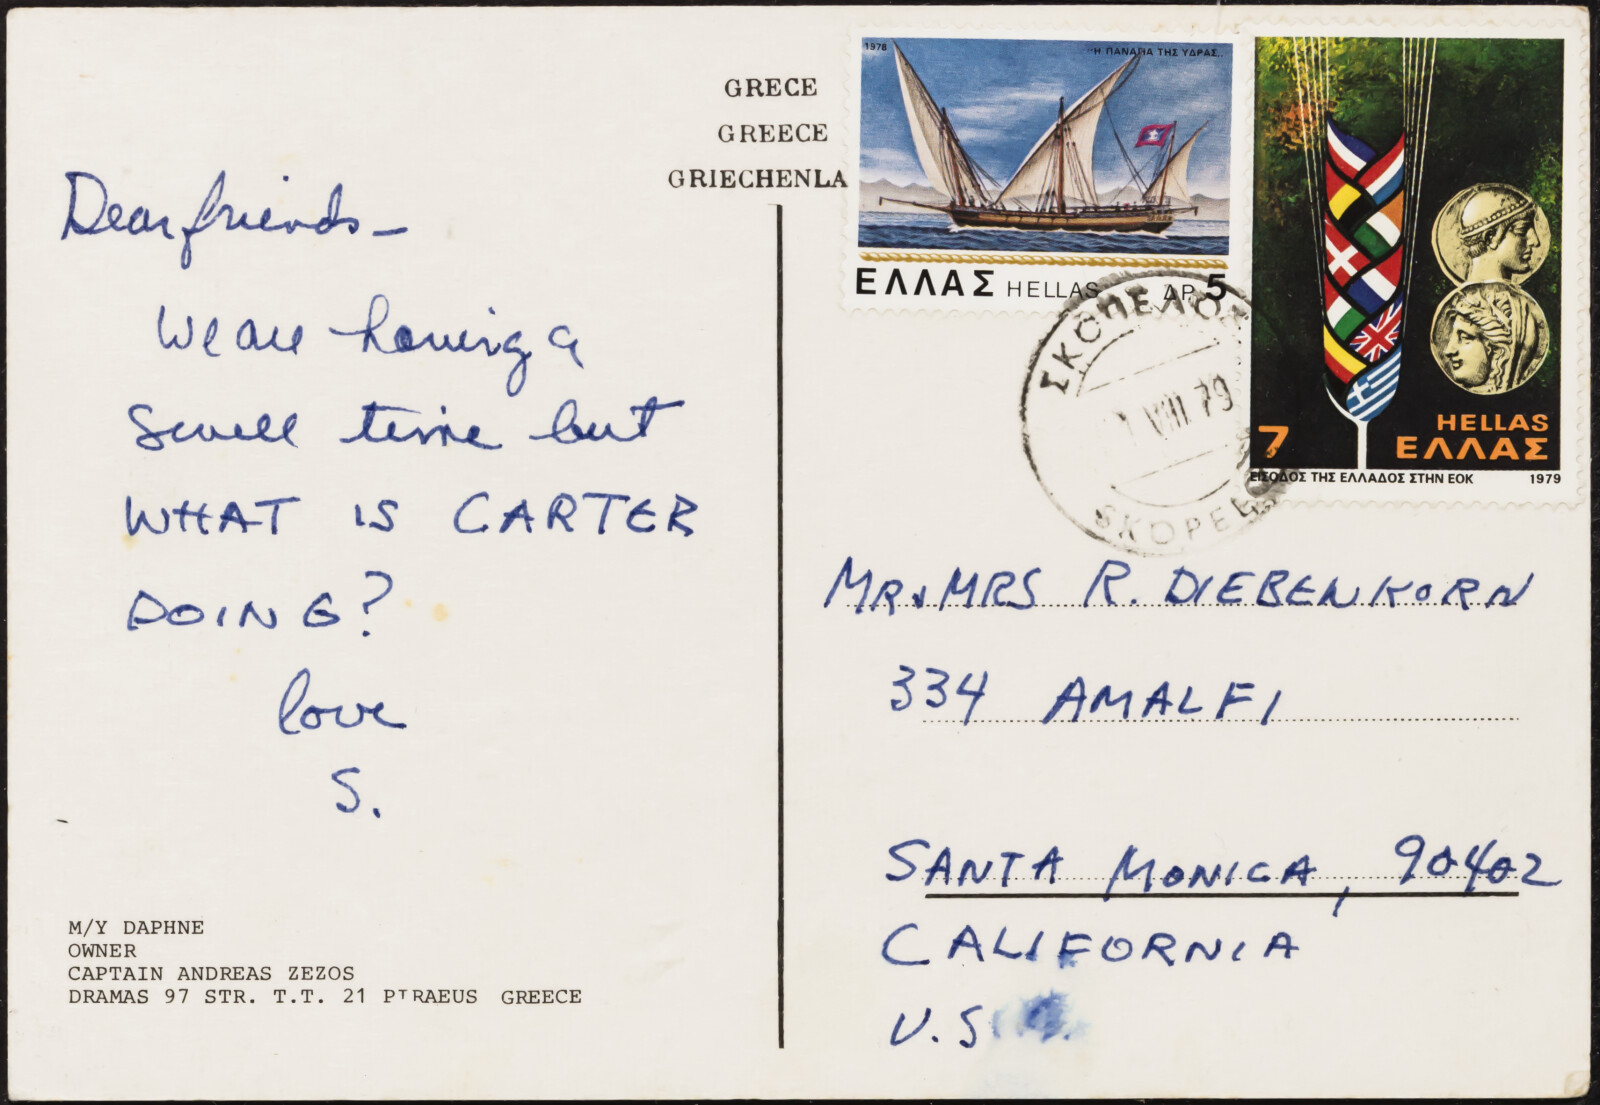 Dear friends —
We are having a
swell time but
WHAT IS CARTER
DOING?
love
S.
M/Y DAPHNE
OWNER
CAPTAIN ANDREAS ZEZOS
DRAMAS 97 STR. T.T. 21 PIRAEUS GREECE
GRECE
GREECE
GRIECHENLA
1978
"Η ΠΑΝΑΓΙΑ ΤΗΣ ΥΔΡΑΣ"
ΕΛΛΑΣ HELLAS ΔΡ. 5
7
HELLAS
ΕΛΛΑΣ
ΕΙΣΟΔΟΣ ΤΗΣ ΕΛΛΑΔΟΣ ΣΤΗΝ ΕΟΚ 1979
ΣΚΟΠΕΛΟΣ
VIII 79
SKOPEL
MR & MRS R. DIEBENKORN
334 AMALFI
SANTA MONICA, 90402
CALIFORNIA
U.S